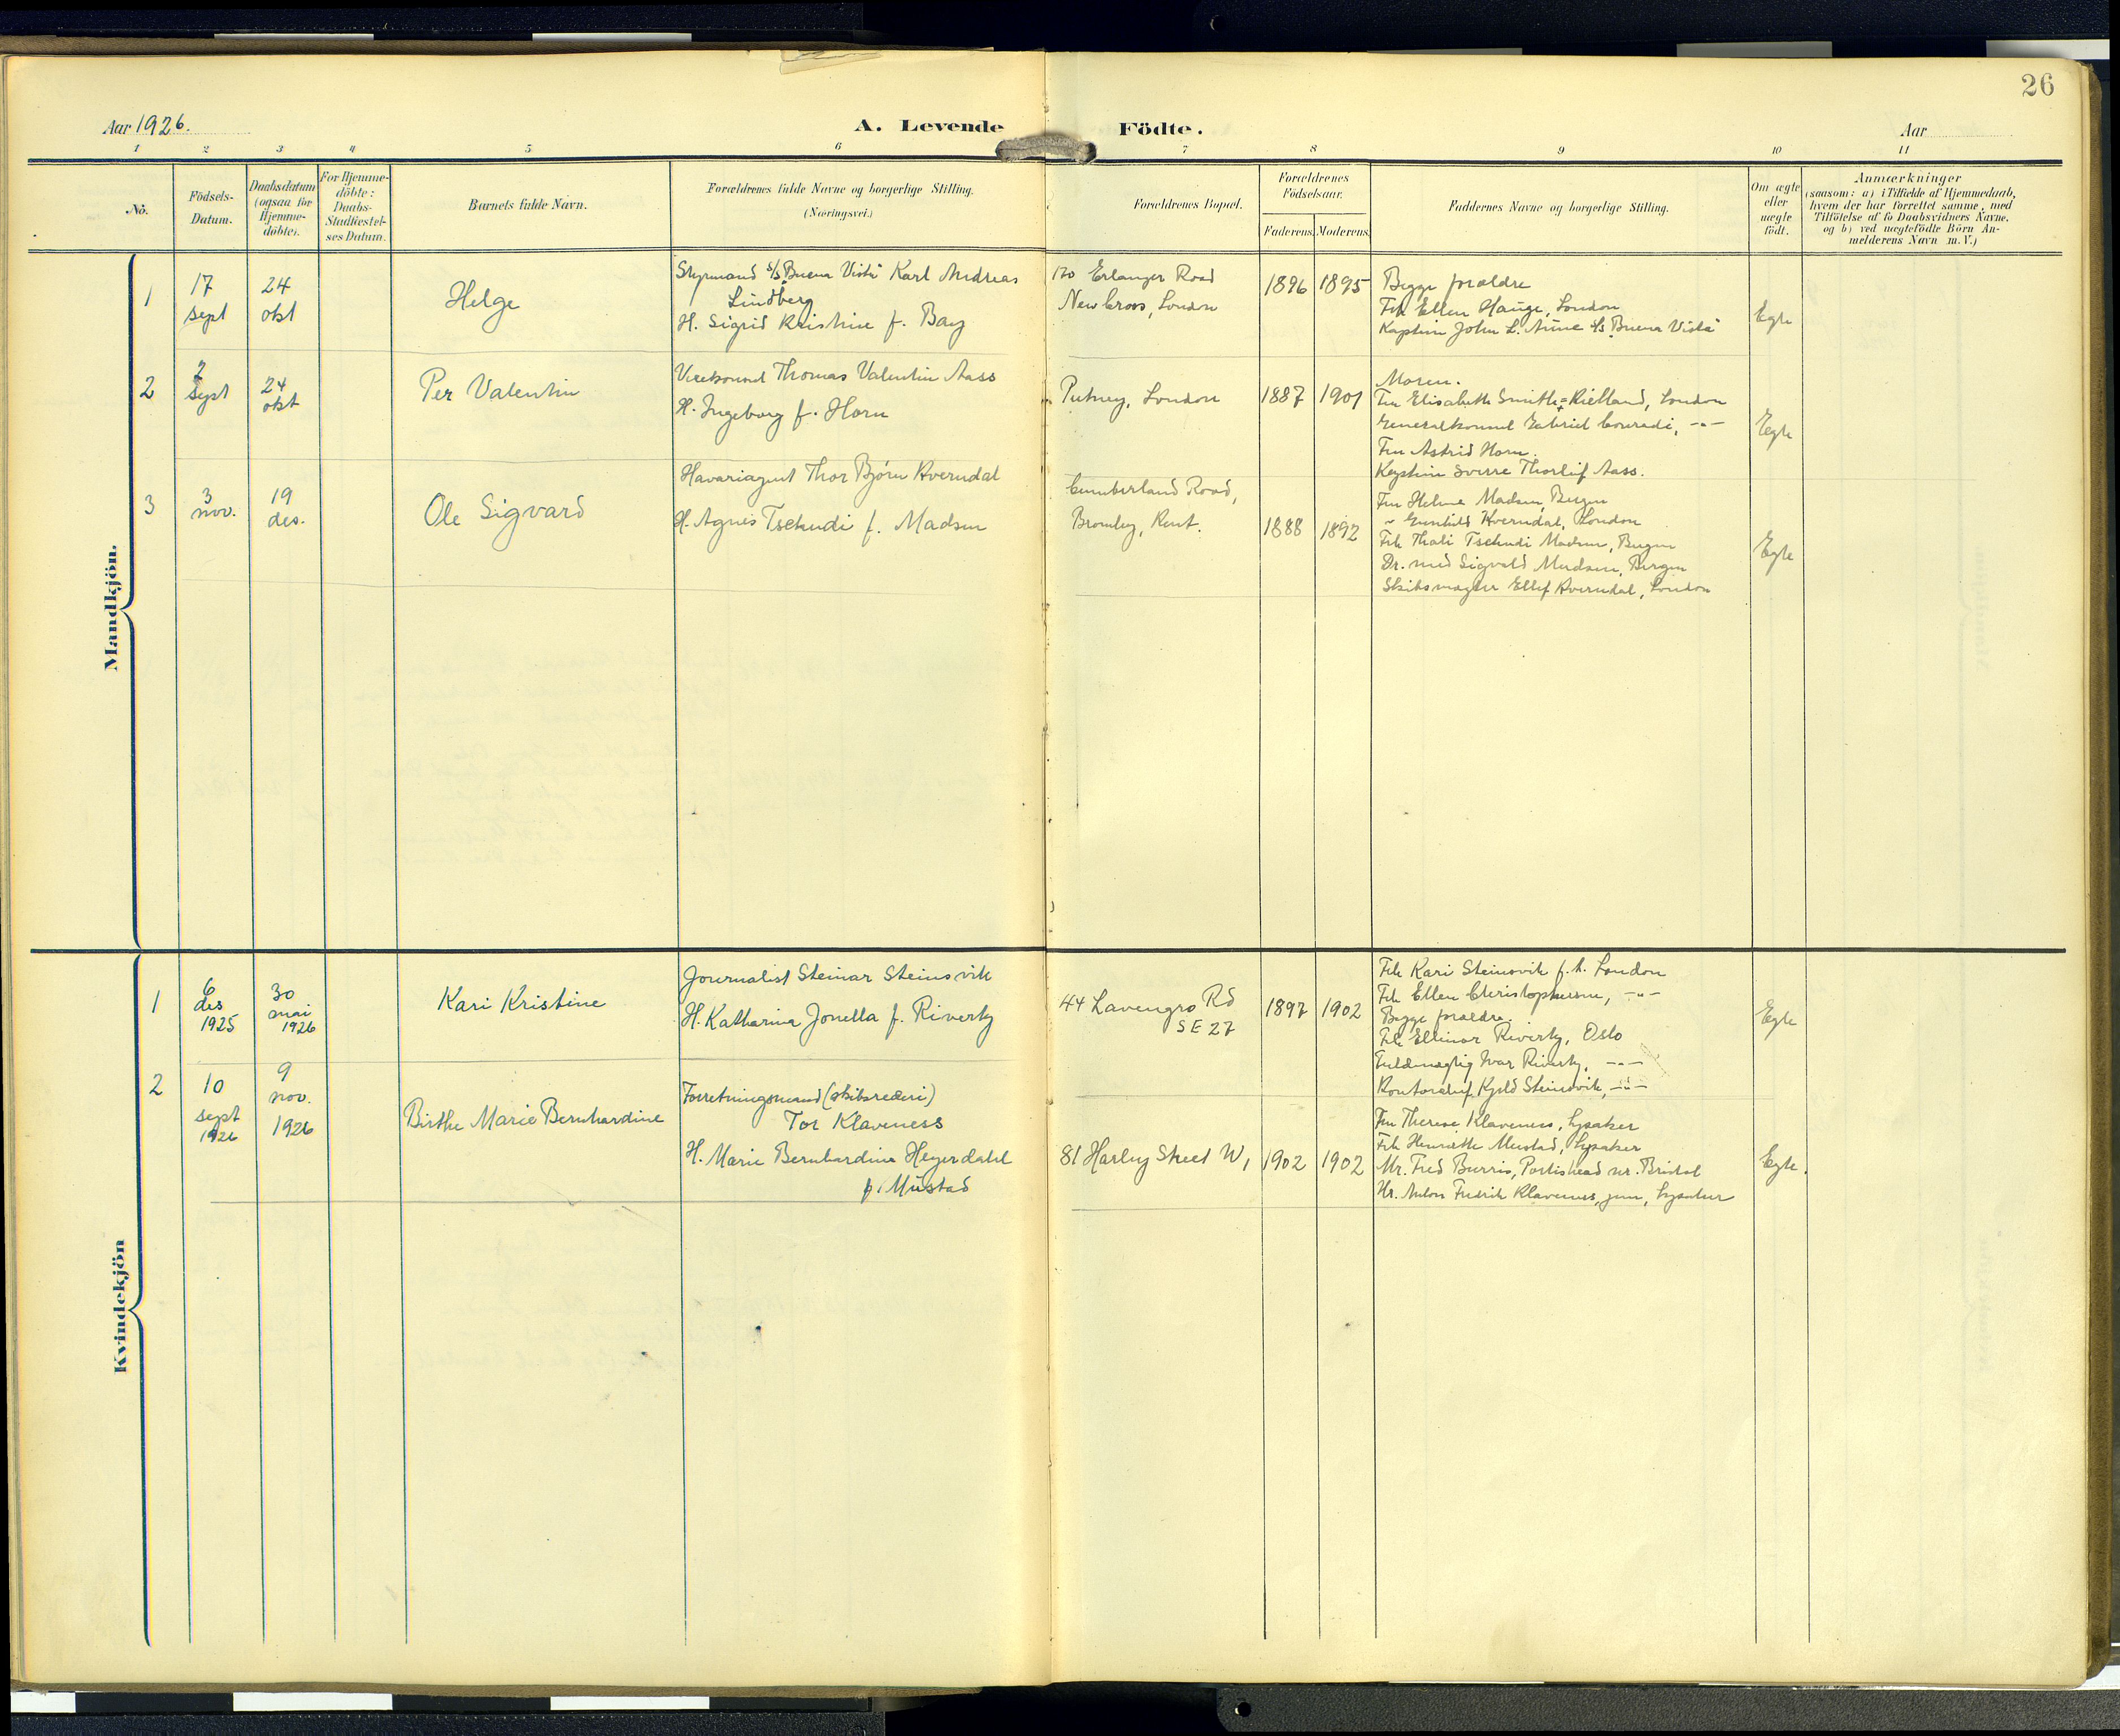 26
Aar 1926.
A. Levende Födte.
Aar
1 2 3 4 5 6 7 8 9 10 11
No.
Födsels-
Datum.
Daabsdatum
(ogsaa for
Hjemme-
döbte).
For Hjemme-
döbte:
Daabs-
Stadfæstel-
ses Datum.
Barnets fulde Navn.
Forældrenes fulde Navne og borgerlige Stilling.
(Næringsvei.)
Forældrenes Bopæl.
Forældrenes
Födselsaar.
Faderens. Moderens.
Faddernes Navne og borgerlige Stilling.
Om ægte
eller
uægte
födt.
Anmærkninger
(saasom: a) i Tilfælde af Hjemmedaab,
hvem der har forrettet samme, med
Tilföielse af to Daabsvidners Navne,
og b) ved uægtefödte Börn An-
melderens Navn m. V.)
Mandkjön.
1
17
sept
24
okt
Helge
Styrmand s/s "Buena Vista" Karl Andreas
Lindberg
H. Sigrid Kristine f. Bay
170 Erlanger Road
New Cross, London
1896 1895
Begge forældre
Frk Ellen Hauge, London
Kaptein John L. Aune s/s "Buena Vista"
Egte
2
2
Sept
24
okt
Per Valentin
Visekonsul Thomas Valentin Aass
H. Ingeborg f. Horn
Putney, London
1887 1901
Moren.
Fru Elisabeth Smith-Kielland, London
Generalkonsul Gabriel Conradi, -"-
Fru Astrid Horn.
Kaptein Sverre Thorleif Aass.
Egte
3
3
nov.
19
des.
Ole Sigvard
Havariagent Thor Bjørn Kverndal
H. Agnes Tschudi f. Madsen
Cumberland Road,
Bromley, Kent.
1888 1892
Fru Helene Madsen, Bergen
" Gunhild Kverndal, London
Frk Thali Tschudi Madsen, Bergen
Dr. med Sigvald Madsen, Bergen
Skibsmægler Ellef Kverndal, London
Egte
Kvindekjön
1
6
des
1925
30
mai
1926
Kari Kristine
Journalist Steinar Steinsvik
H. Katharina Jonella f. Riverty
44 Lavengro Rd
SE 27
1897 1902
Frk Kari Steinsvik f. t. London
Frk Ellen Christophersen, -"-
Begge forældre.
Frk Ellinor Riverty, Oslo
Fuldmægtig Ivar Riverty, -"-
Kontorchef Kjeld Steinsvik, -"-
Egte
2
10
sept
1926
9
nov.
1926
Birthe Marie Bernhardine
Forretningsmand (skibsrederi)
Tor Klaveness
H. Marie Bernhardine Heyerdahl
f. Mustad
81 Harley Street W1
1902 1902
Fru Therese Klaveness, Lysaker
Frk Henriette Mustad, Lysaker
Mr. Fred Burris, Portishead nr. Bristol
Hr. Anton Fredrik Klaveness, jun, Lysaker
Egte.